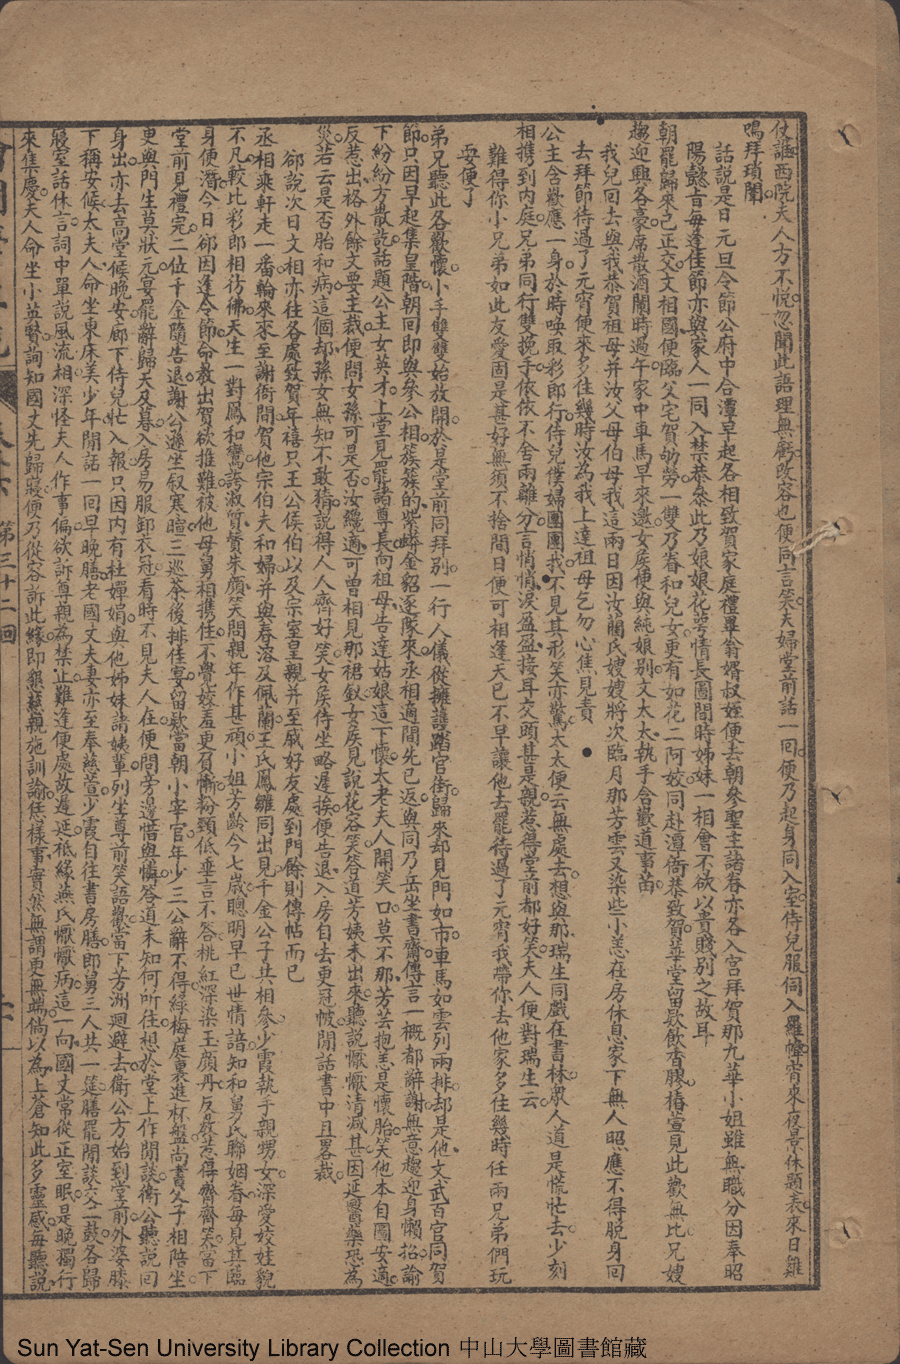 仗謳西院夫人方不悅忽聞此語理無虧改容也便同言笑夫婦堂前話一回便乃起身同入室侍兒服伺入羅幃宵來夜景休題表來日雞
鳴拜瑣闈
話說是日元旦令節公府中合潭早起各相致賀家庭禮畢翁婿叔姪便去朝參聖主諸眷亦各入宮拜賀那九華小姐雖無職分因奉昭
陽懿旨每逢佳節亦與家人一同入禁恭叅此乃娘娘花萼情長圖閒時姊妹一相會不欲以貴賤別之故耳
朝罷歸來已正交文相國便臨父宅賀劬勞一雙乃眷和兒女更有如花二阿姣同赴潭衙恭致賀華堂留歇飲香膠椿萱見此歡無比兄嫂
趨迎興各豪席散酒闌時過午家中車馬早來邀女侯使與純娘別文太太執手含歡道事苗
我兒回去與我恭賀祖母并汝父母伯母我這兩日因汝蘭氏嫂嫂將次臨月那芳雲又染些小恙在房休息家下無人照應不得脫身回
去拜節待過了元宵便來多住幾時汝為我上達祖母乞勿心焦見責
公主含歡應一身於時喚取彩郎行侍兒僕婦團團我不見其形笑亦驚太太便云無處去想與那瑞生同戲在書林衆人道是慌忙去少刻
相携到內庭兄弟同行雙挽手依依不舍兩離分言悄悄淚盈盈接耳交頭甚是親惹得堂前都好笑夫人便對瑞生云
難得你小兄弟如此友愛固是甚好無須不捨間日便可相逢天已不早讓他去罷待過了元宵我帶你去他家多住幾時任兩兄弟們玩
耍便了
弟兄聽此各歡懷小手雙雙始放開於是堂前同拜別一行人儀從擁護踏官街歸來却見門如市車馬如雲列兩排却是他文武百官同賀
節只因早起集皇階朝回即與參公相簇簇的紫蟒金貂逐隊來丞相適間先已返與同乃岳坐書齋傳言一概都辭謝無意趨迎身懶抬諭
下紛紛方散訖話題公主女英才上堂見罷諸尊長向祖母告達姑娘這下懷太老夫人開笑口莫不那芳芸抱恙是懷胎笑他本自圖安適
反惹出格外餘文要主裁便問女孫可是否汝纔適可曾相見那裙釵女侯見說花容笑答道芳姨未出來聽說懨懨清減甚因延醫藥恐為
災若云是否胎和病這個却孫女無知不敢猜說得人人齊好笑女侯侍坐略遲挨便告退入房自去更冠帔閒話書中且畧裁
郤說次日文相亦往各處致賀年禧只王公侯伯以及宗室皇親并至戚好友處到門餘則傳帖而已
丞相乘軒走一番輪來來至謝衙間賀他宗伯夫和婦并與春溶及佩蘭王氏鳳雛同出見千金公子共相參少霞執手親甥女深愛姣娃貌
不凡較比彩郎相彷彿天生一對鳳和鸞誇淑質贊朱顔笑問親年作甚頑小姐芳齡今七歲聰明早已世情諳知和舅氏聯姻眷每見其臨
身便潛今日郤因逢令節命教出賀欲推難被他母舅相携住不覺姣羞更負慚粉頸低垂言不答桃紅深染玉顔丹反教惹得齊齊笑當下
堂前見禮完二位千金隨告退謝公遜坐叙寒暄三巡茶後排佳宴留歇當朝小宰官年少三公辭不得綠梅庭裏進杯盤尚書父子相陪坐
更與門生莫狀元宴罷辭歸天及暮入房易服卸衣冠看時不見夫人在便問旁邊惜與憐答道未知何所往想於堂上作閒談衛公聽說回
身出亦去高堂候晚安廊下侍兒忙入報只因內有杜嬋娟與他姊妹諸姨輩列坐尊前笑語歡當下芳洲迴避去衛公方始到堂前外婆膝
下稱安候太夫人命坐東床美少年閒話一回早晚膳老國丈夫妻亦至奉慈萱少霞自往書房膳郎舅三人共一筵膳罷閒談交二鼓各歸
寢室話休言詞中單說風流相深怪夫人作事偏欲訴尊親為禁止難逢便處故遲延祗緣燕氏懨懨病這一向國丈常從正室眠是晚獨行
來集慶夫人命坐小英賢詢知國丈先歸寢便乃從容訴此緣即懇慈親施訓諭恁樣事實然無謂更無端倘以為上蒼知此多靈感每聽說
第三十二回
Sun Yat-Sen University Library Collection 中山大學圖書館藏